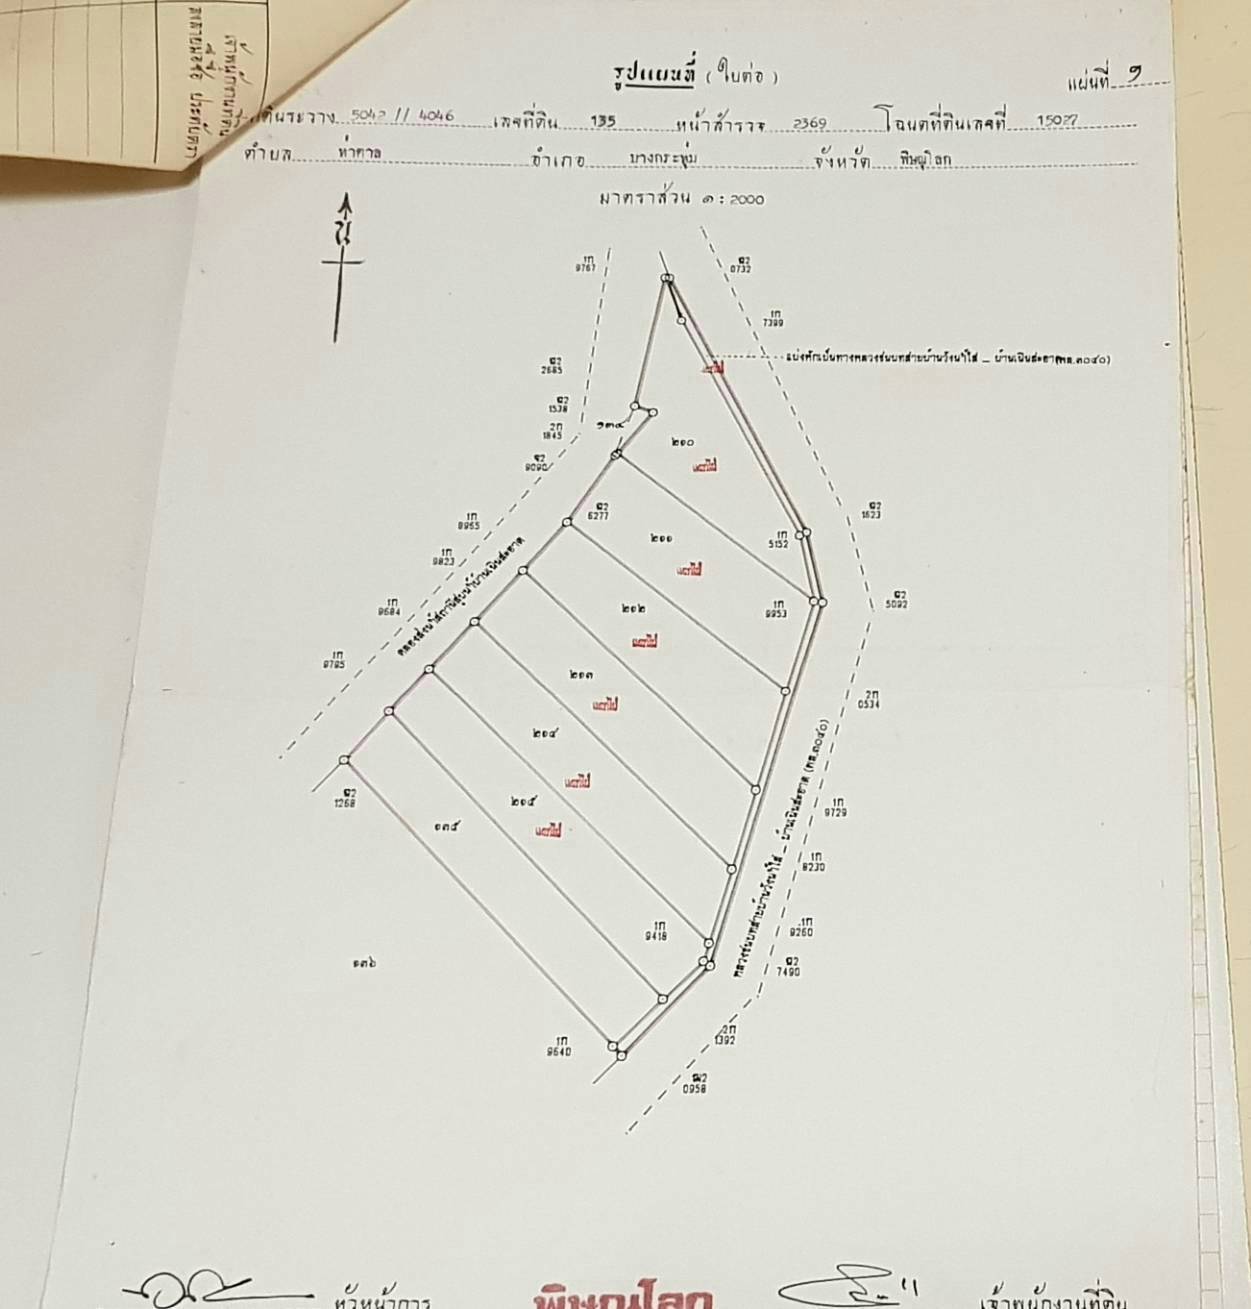 รูปแผนที่ (ใบต่อ)
แผ่นที่ ๑
ระวาง 5042 // 4046 เลขที่ดิน 135 หน้าสำรวจ 2369 โฉนดที่ดินเลขที่ 15027
ตำบล ท่าตาล อำเภอ บางกระทุ่ม จังหวัด พิษณุโลก
มาตราส่วน ๑ : 2000
น
1ก
9767
ฉ2
0732
1ก
7399
แบ่งหักเป็นทางหลวงชนบทสายบ้านวังน้ำใส - บ้านเนินสะอาด(พล.๓๐๔๐)
ฉ2
2685
ฉ2
1538
2ก
1845
๑๓๔
๒๑๐
แยกไป
ฉ2
9090
ฉ2
6277
ฉ2
1623
1ก
8965
๒๑๑
1ก
5152
แยกไป
1ก
9823
คลองส่งน้ำใสสถานีสูบน้ำบ้านเนินสะอาด
1ก
9684
๒๑๒
1ก
9953
ฉ2
5092
แยกไป
1ก
9795
๒๑๓
แยกไป
2ก
0534
๒๑๔
แยกไป
ทางหลวงชนบทสายบ้านวังน้ำใส - บ้านเนินสะอาด (พล.๓๐๔๐)
ฉ2
1268
๑๓๕
๒๑๕
แยกไป
1ก
9729
1ก
8230
1ก
9418
1ก
9260
๑๓๖
ฉ2
7490
1ก
9640
2ก
1392
ฉ2
0958
หัวหน้าการ
พิษณุโลก
เจ้าพนักงานที่ดิน